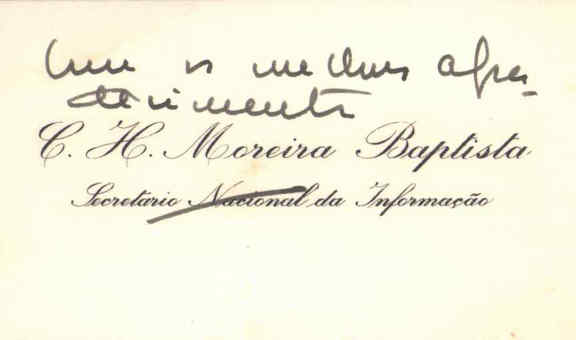 Com os melhores agra-
decimentos
C. H. Moreira Baptista
Secretário Nacional da Informação